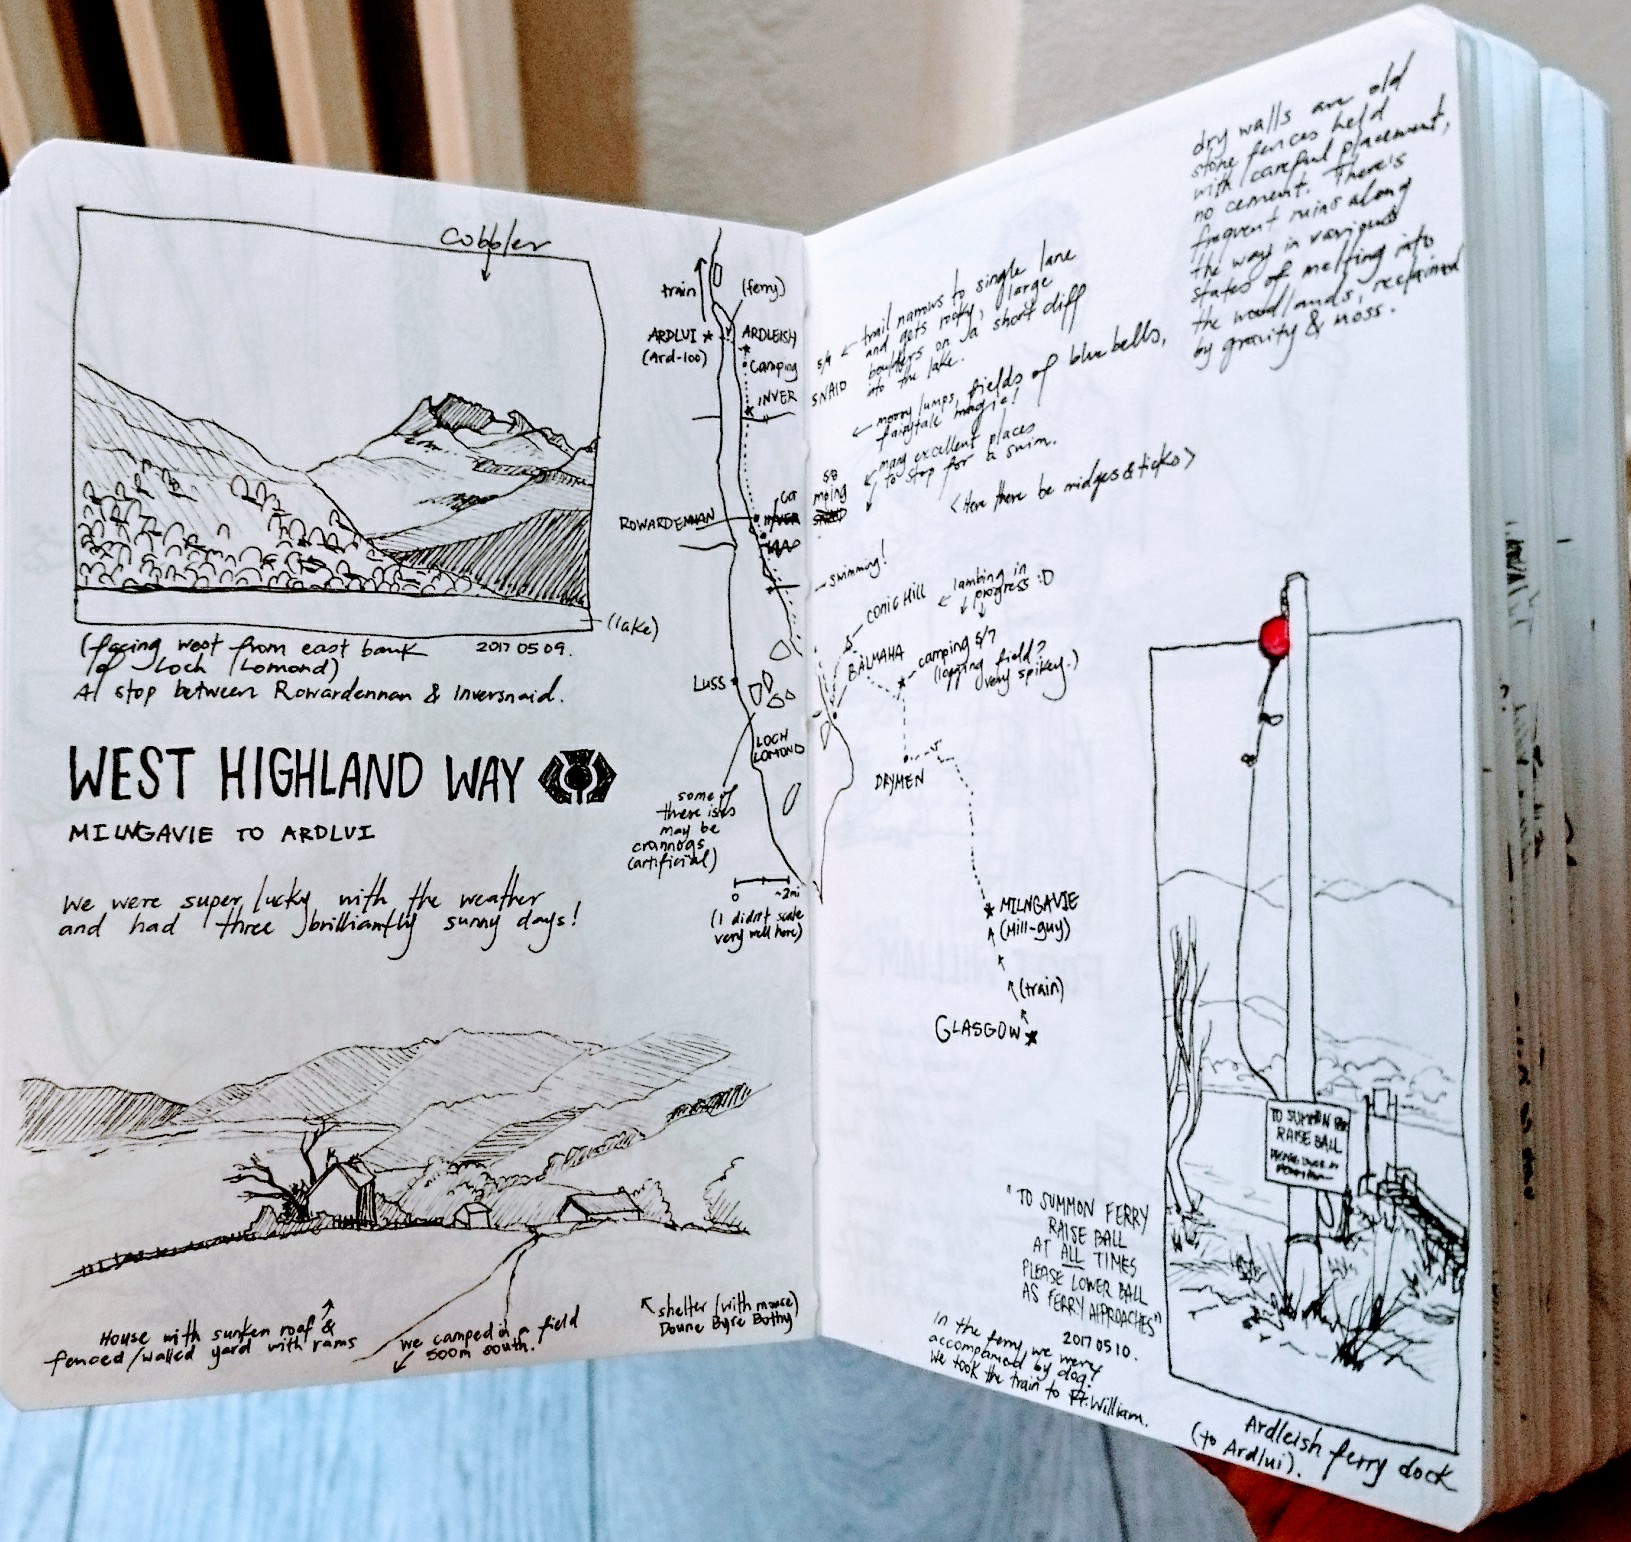 Cobbler
(lake)
(facing west from east bank
of Loch Lomond) 2017 05 09.
At stop between Rowardennan & Inversnaid.
WEST HIGHLAND WAY
MILNGAVIE TO ARDLUI
We were super lucky with the weather
and had three brilliantly sunny days!
House with sunken roof &
fenced/walled yard with rams
we camped in a field
500m south.
shelter (with mouse)
Doune Byre Bothy
train
(ferry)
ARDLUI
(Ard-loo)
ARDLEISH
camping
INVER
SNAID
5/9
ROWARDENNAN
5/8
camping
swimming!
CONIC HILL
BALMAHA
LUSS
LOCH
LOMOND
some of
these isles
may be
crannogs
(artificial)
0 ~2mi
(I didn't scale
very well here)
trail narrows to single lane
and gets rocky, large
boulders on a short cliff
into the lake.
mossy lumps, fields of blue bells,
fairytale magic!
many excellent places
to stop for a swim.
<Here there be midges & ticks>
lambing in
progress :D
camping 5/7
(logging field?
very spikey.)
DRYMEN
MILNGAVIE
(Mill-guy)
(train)
GLASGOW
dry walls are old
stone fences held
with careful placement,
no cement. There's
frequent ruins along
the way in various
states of melting into
the woodlands, reclaimed
by gravity & moss.
TO SUMMON
RAISE BALL
"TO SUMMON FERRY
RAISE BALL
AT ALL TIMES
PLEASE LOWER BALL
AS FERRY APPROACHES"
2017 05 10.
In the ferry we were
accompanied by dog!
We took the train to Ft. William.
Ardleish ferry dock
(to Ardlui).